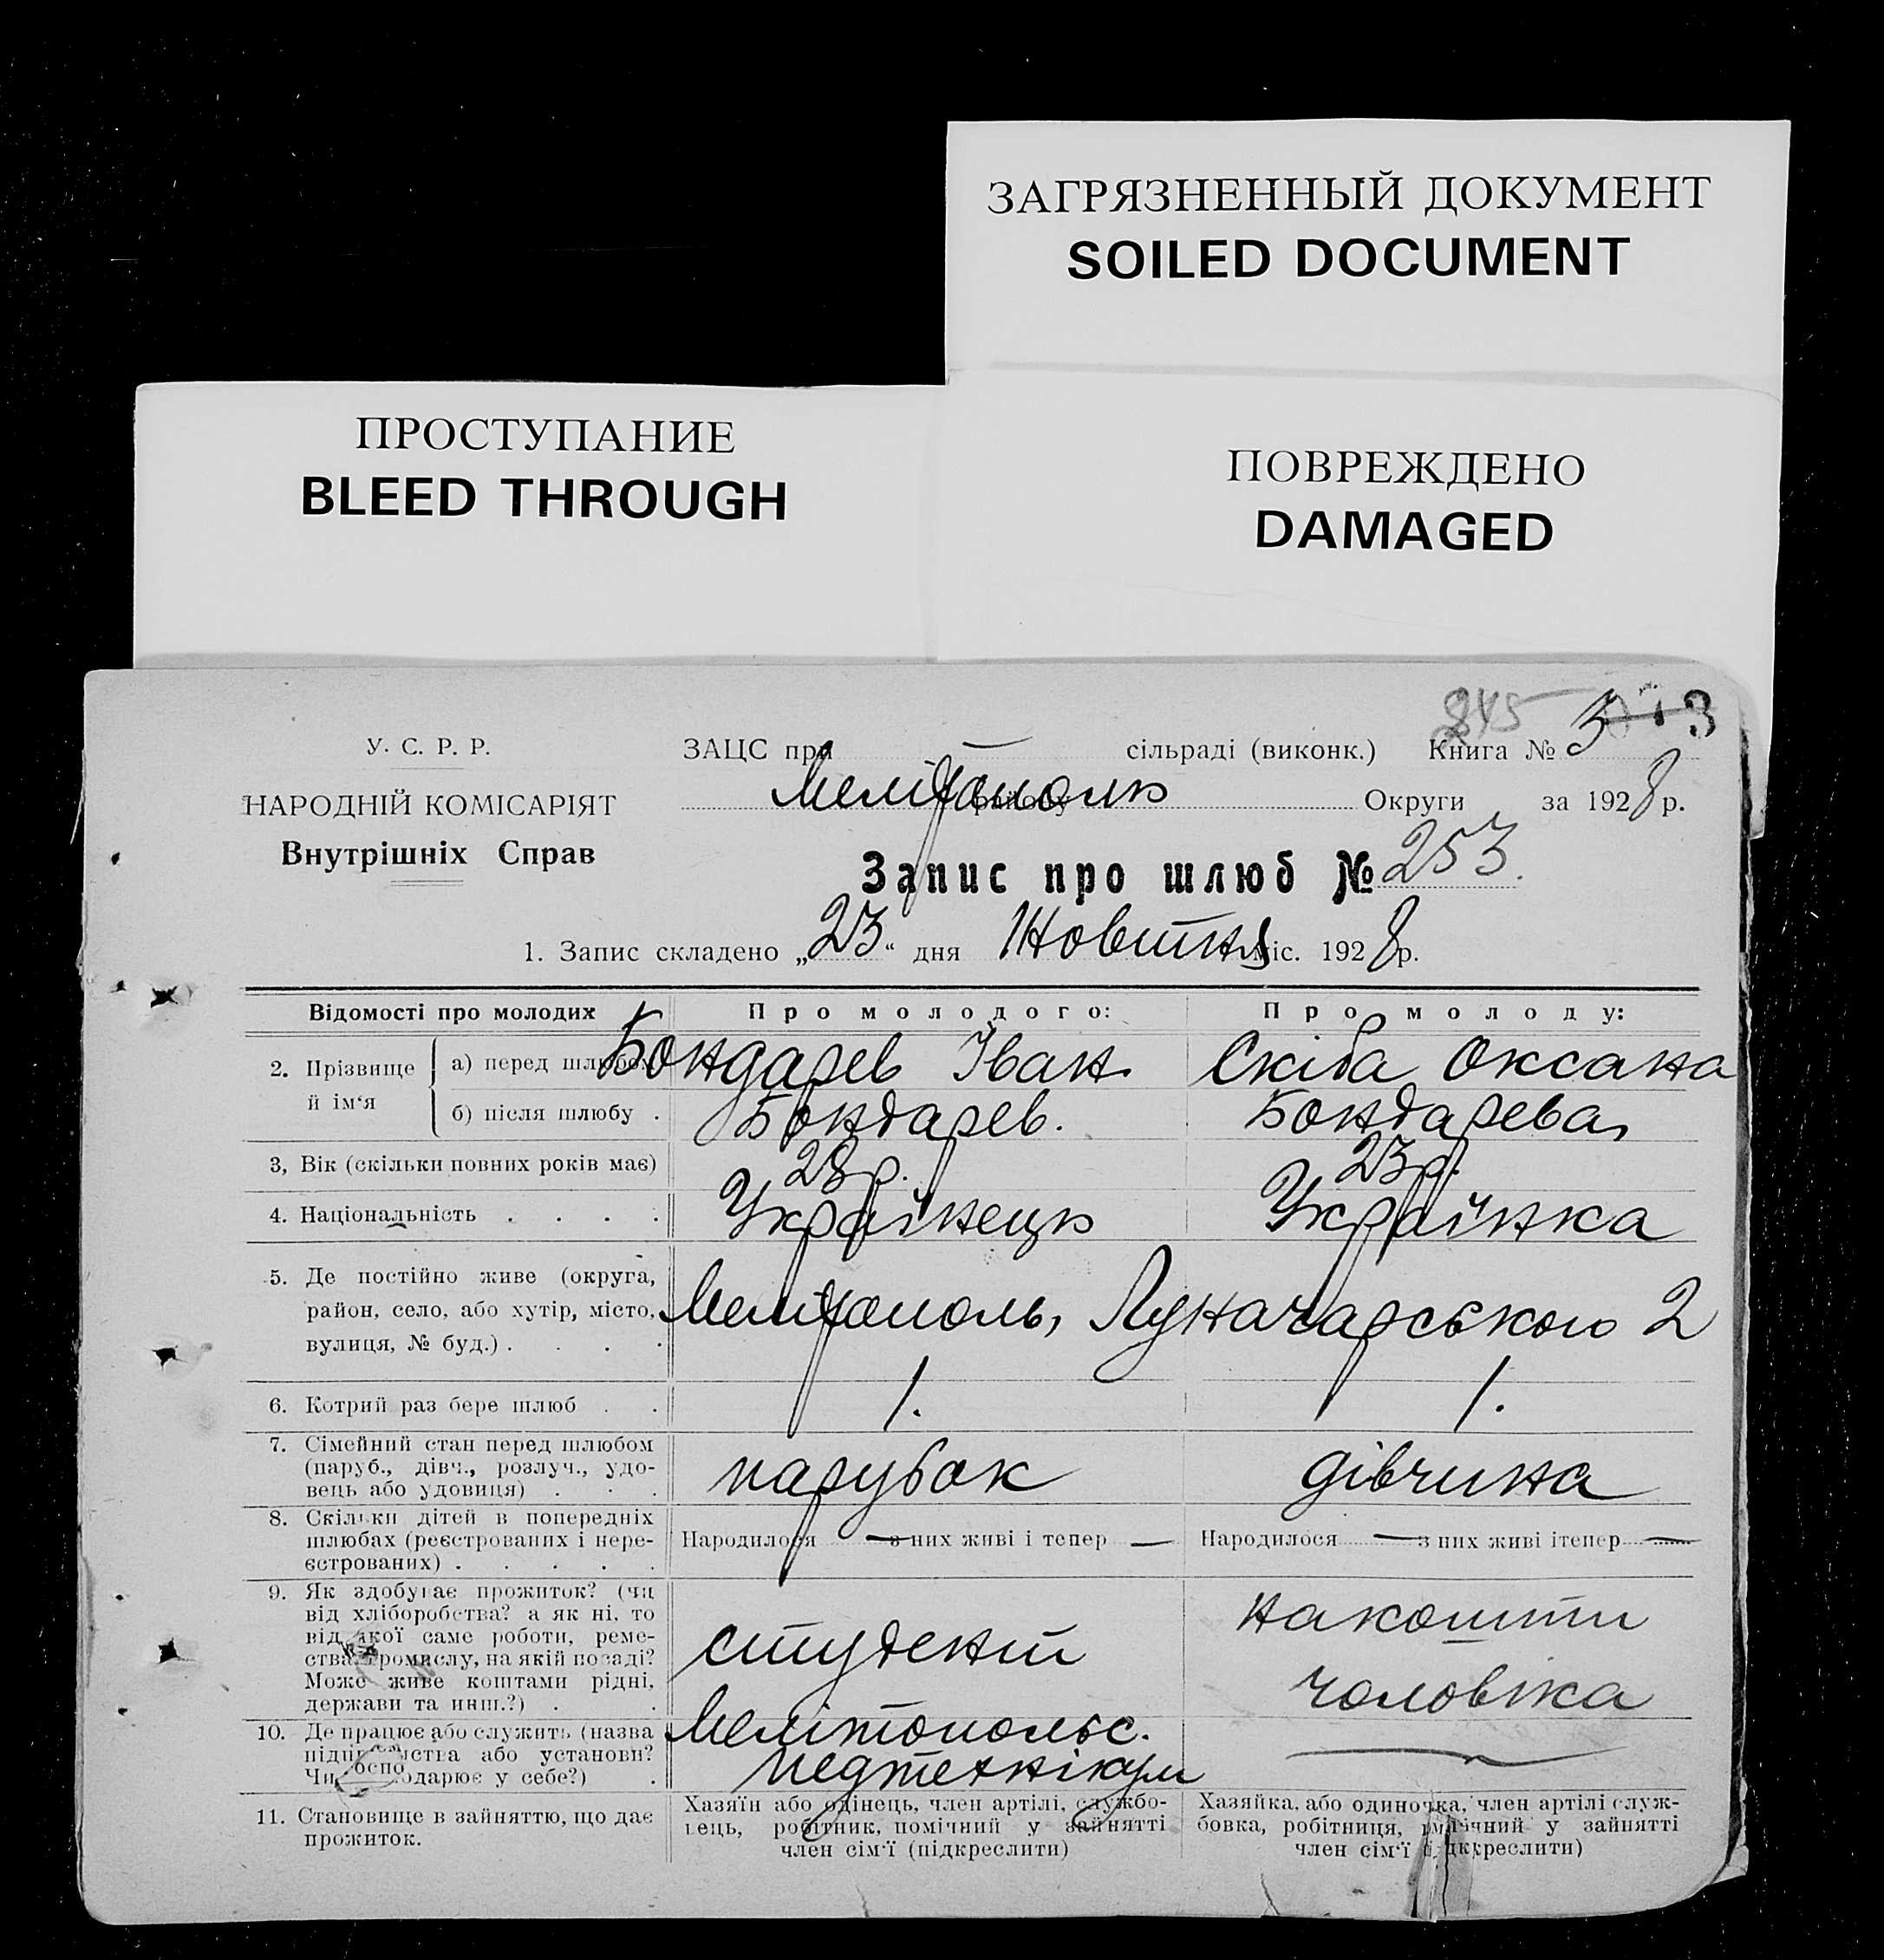 ЗАГРЯЗНЕННЫЙ ДОКУМЕНТ
SOILED DOCUMENT
ПРОСТУПАНИЕ
BLEED THROUGH
ПОВРЕЖДЕНО
DAMAGED
245
3
У. С. Р. Р.
НАРОДНІЙ КОМІСАРІЯТ
Внутрішніх Справ
ЗАЦС при — сільраді (виконк.) Книга № 3
Мелітополь району Округи за 1928 р.
Запис про шлюб № 253.
1. Запис складено „23“ дня Жовтня міс. 1928 р.
Відомості про молодих Про молодого: Про молоду:
2. Прізвище й ім‘я а) перед шлюбом Бондарев Іван Скіба Оксана
б) після шлюбу . Бондарев. Бондарева
3, Вік (скільки повних років має) 28 р. 23 р.
4. Національність . . . . Українець Українка
5. Де постійно живе (округа,
район, село, або хутір, місто, Мелітополь, Луначарського 2
вулиця, № буд.) . . . .
6. Котрий раз бере шлюб . . 1. 1.
7. Сімейний стан перед шлюбом
(паруб., дівч., розлуч., удо- парубок дівчина
вець або удовиця) . . .
8. Скільки дітей в попередніх
шлюбах (реєстрованих і нере- Народилося — з них живі і тепер — Народилося — з них живі ітепер —
єстрованих) . . . . .
9. Як здобуває прожиток? (чи
від хліборобства? а як ні, то на кошти
від якої саме роботи, реме- студент
ства, промислу, на якій посаді?
Може живе коштами рідні, чоловіка
держави та инш.?) . .
10. Де працює або служить (назва Мелітопольс.
підприємства або установи? педтехнікум —
Чи господарює у себе?) .
11. Становище в зайняттю, що дає
прожиток.
Хазяїн або одінець, член артілі, службо-
вець, робітник, помічний у зайнятті
член сім‘ї (підкреслити)
Хазяйка, або одиночка, член артілі служ-
бовка, робітниця, помічний у зайнятті
член сім‘ї підкреслити)